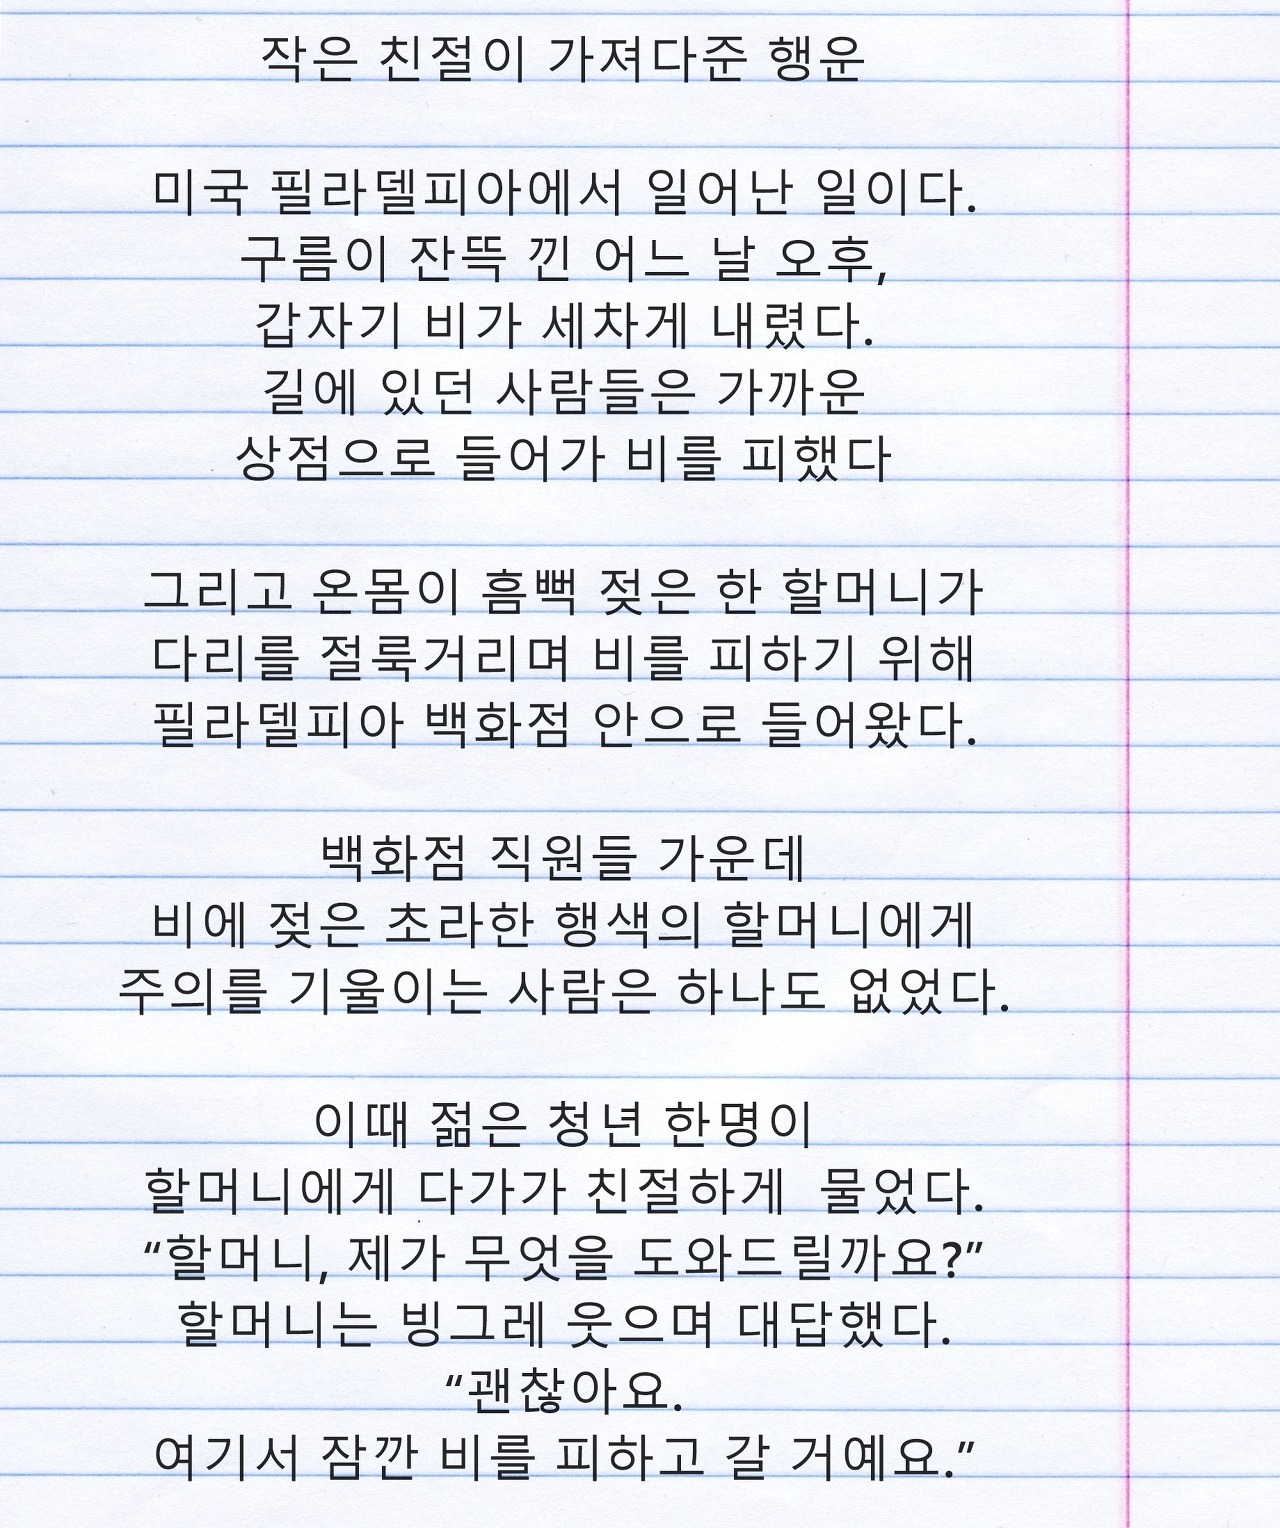 작은 친절이 가져다준 행운
미국 필라델피아에서 일어난 일이다.
구름이 잔뜩 낀 어느 날 오후,
갑자기 비가 세차게 내렸다.
길에 있던 사람들은 가까운
상점으로 들어가 비를 피했다
그리고 온몸이 흠뻑 젖은 한 할머니가
다리를 절룩거리며 비를 피하기 위해
필라델피아 백화점 안으로 들어왔다.
백화점 직원들 가운데
비에 젖은 초라한 행색의 할머니에게
주의를 기울이는 사람은 하나도 없었다.
이때 젊은 청년 한명이
할머니에게 다가가 친절하게  물었다.
“할머니, 제가 무엇을 도와드릴까요?”
할머니는 빙그레 웃으며 대답했다.
“괜찮아요.
여기서 잠깐 비를 피하고 갈 거예요.”